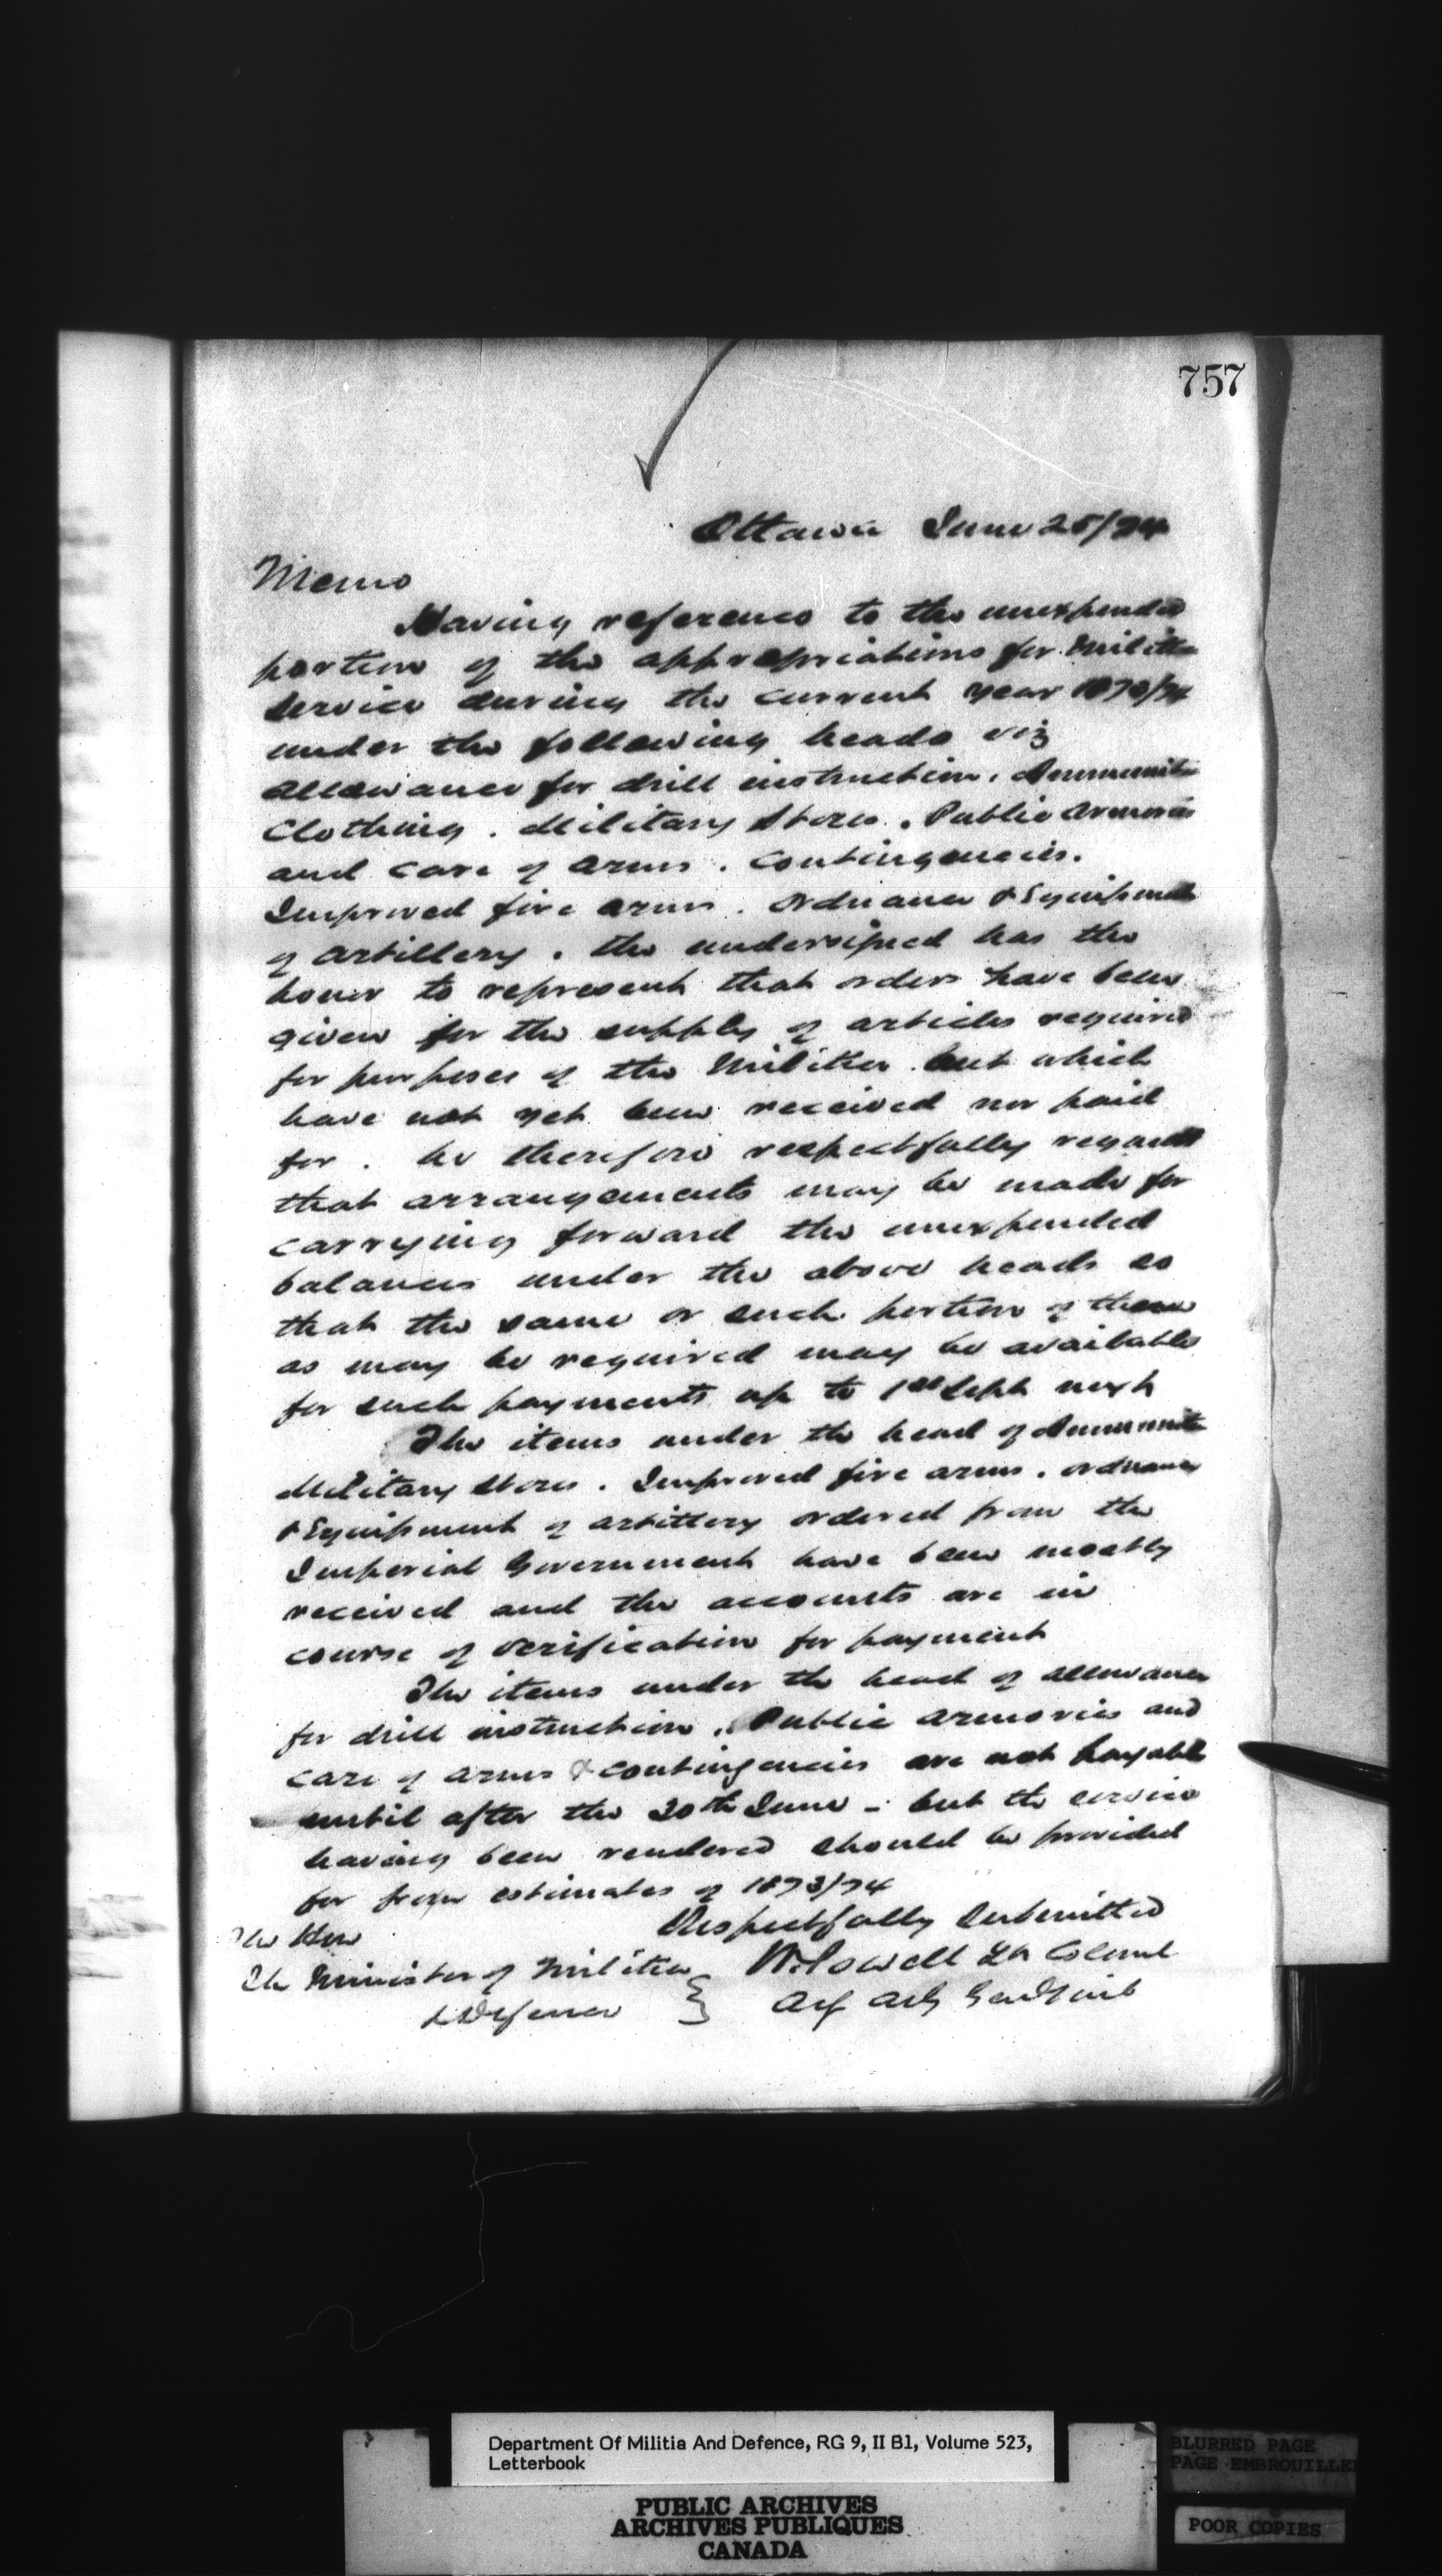 757
Ottawa June 25/74
Memo
Having reference to the unexpended
portion of the appropriations for Militia
Service during the current year 1873/74
under the following heads viz
Allowance for drill instruction. Ammunit
Clothing. Military Stores. Public Armories
and care of arms. Contingencies.
Improved fire arms. Ordnance & Equipment
of Artillery. the undersigned has the
honor to represent that orders have been
given for the supply of articles required
for purposes of the Militia but which
have not yet been received nor paid
for. he therefore respectfully requests
that arrangements may be made for
carrying forward the unexpended
balances under the above heads so
that the same or such portion of them
as may be required may be available
for such payments up to 1st Sept next
The items under the head of Ammunit
Military Stores. Improved fire arms. Ordnance
& Equipment of artillery ordered from the
Imperial Government have been mostly
received and the accounts are in
course of verification for payment
The items under the head of allowance
for drill instruction. Public armories and
care of arms & contingencies are not payable
until after the 30th June - but the service
having been rendered should be provided
for from estimates of 1873/74
Respectfully Submitted
The Hon
The Minister of Militia
& Defence
W. Powell Lt Colonel
Actg Adj Genl Militia
Department Of Militia And Defence, RG 9, II B1, Volume 523,
Letterbook
PUBLIC ARCHIVES
ARCHIVES PUBLIQUES
CANADA
BLURRED PAGE
PAGE EMBROUILLE
POOR COPIES